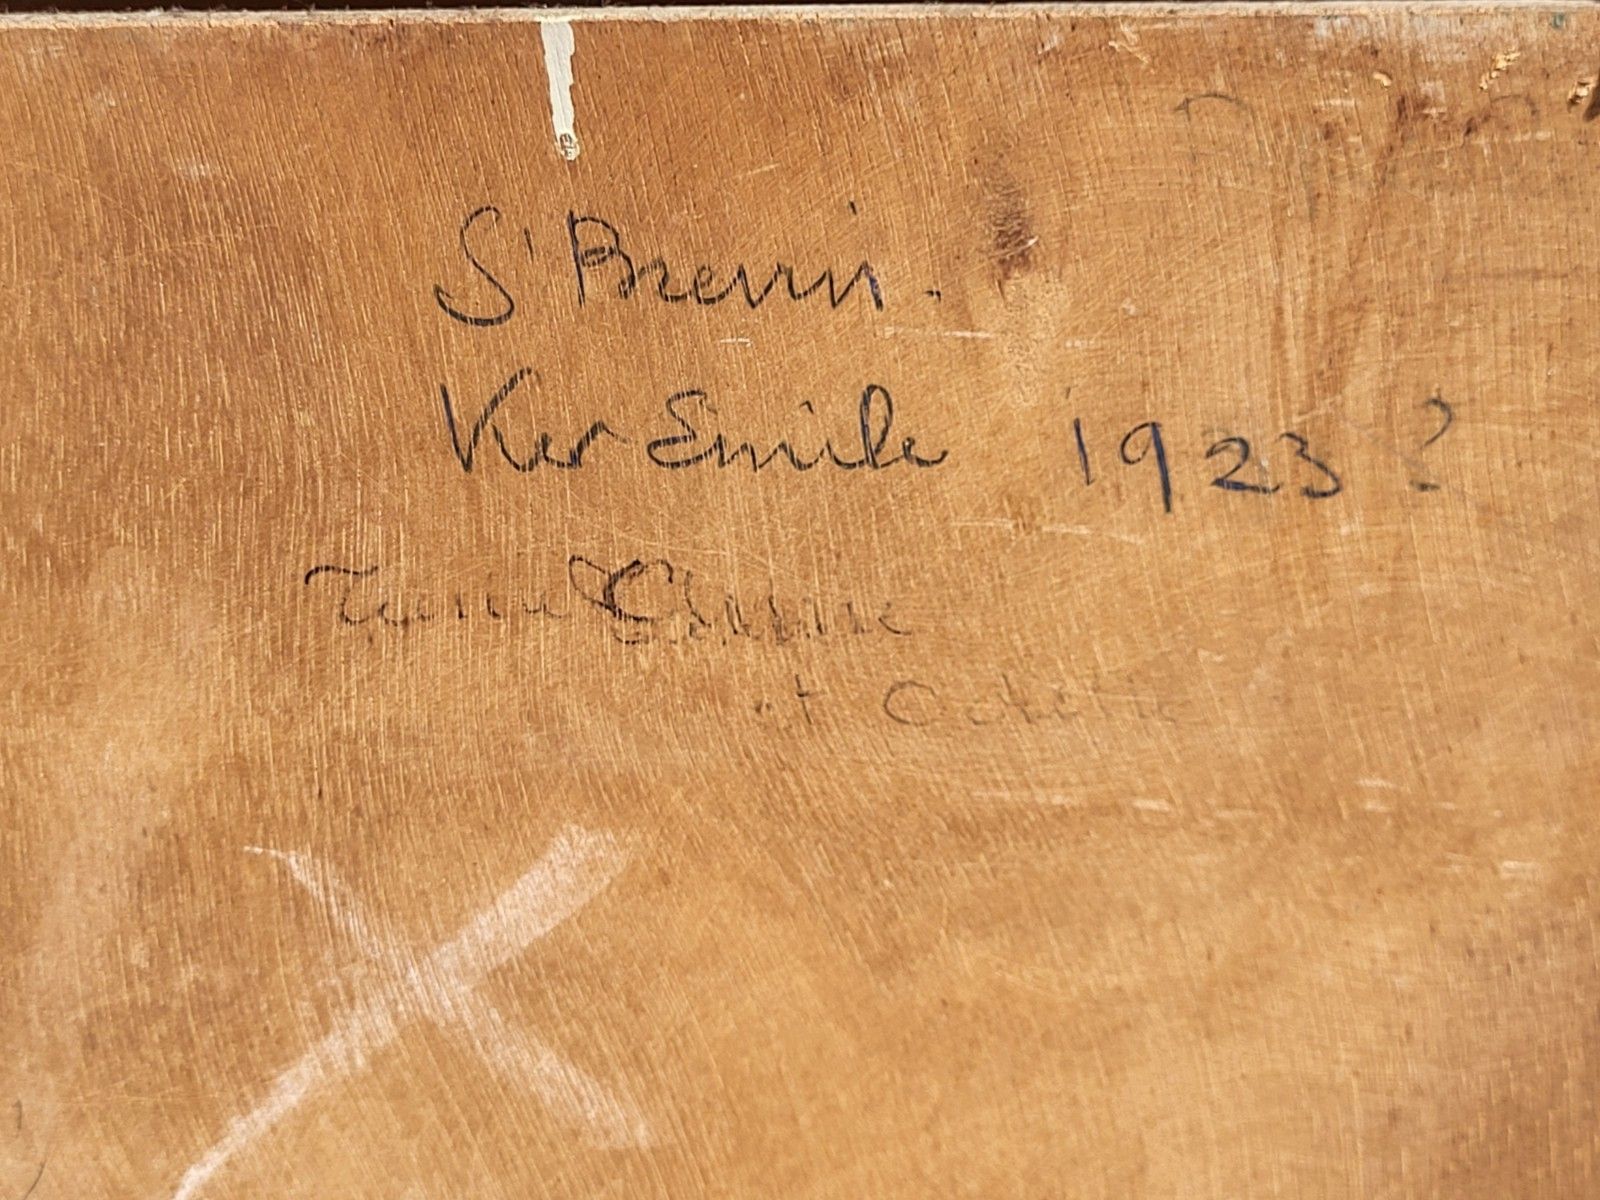 S' Brevin.
Ker Emile 1923 ?
et Odette